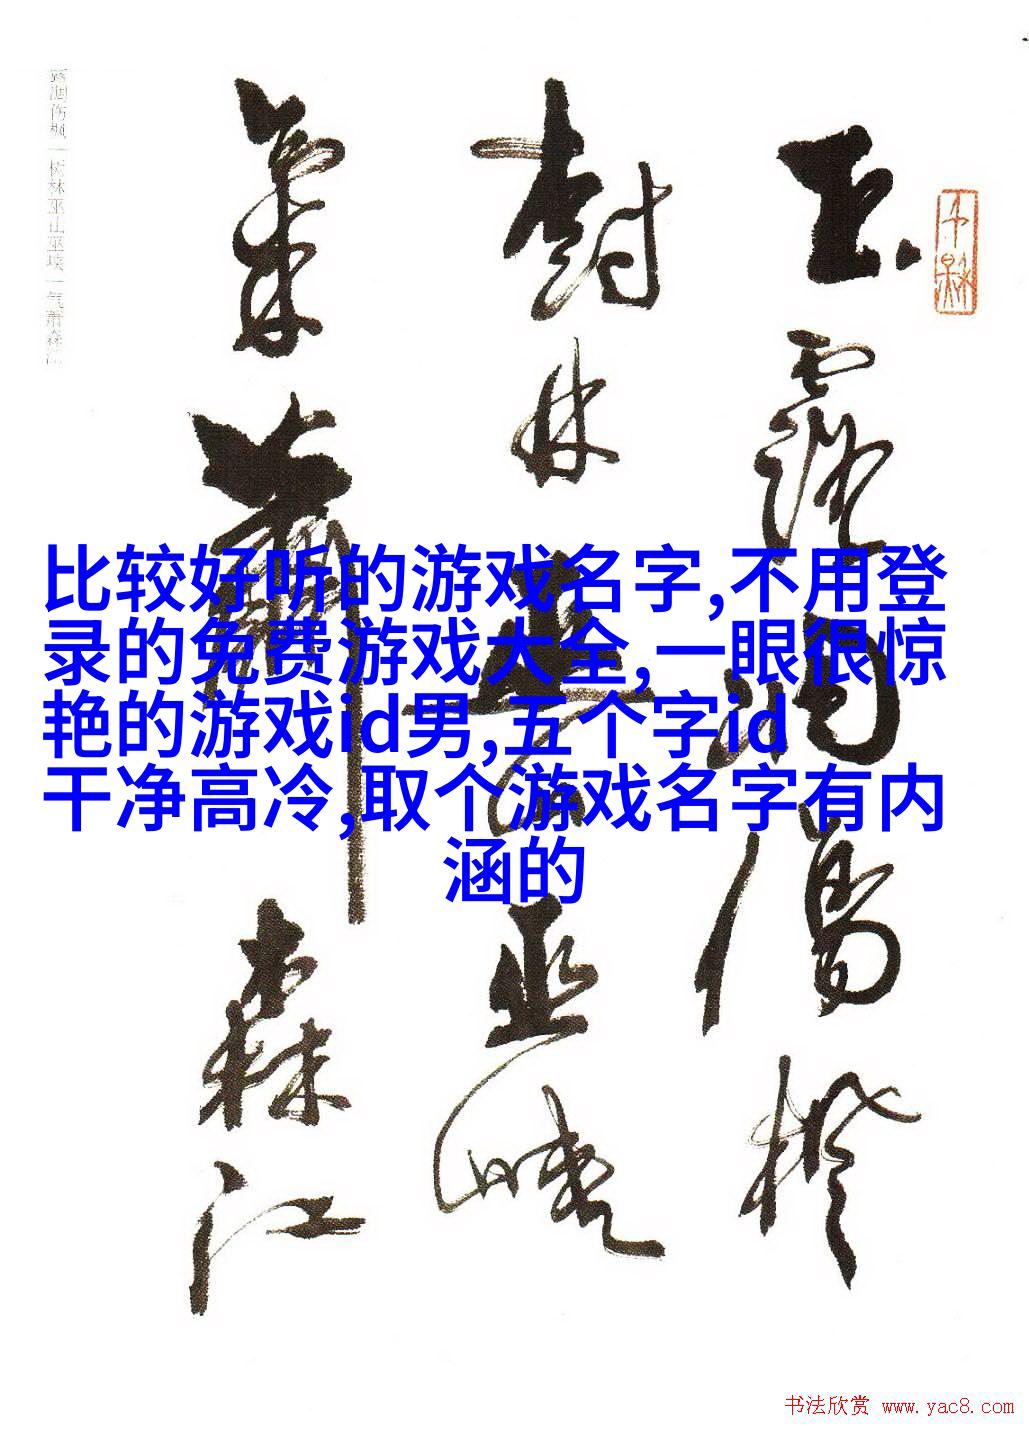 比较好听的游戏名字,不用登
录的免费游戏大全,一眼很惊
艳的游戏id男,五个字id
干净高冷,取个游戏名字有内
涵的
玉露凋傷楓
樹林巫山巫峽
氣蕭森江
书法欣赏 www.yac8.com